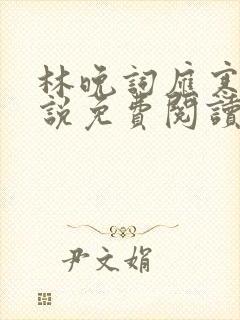 林晚詞雁寒
說免費閱讀
尹文娟